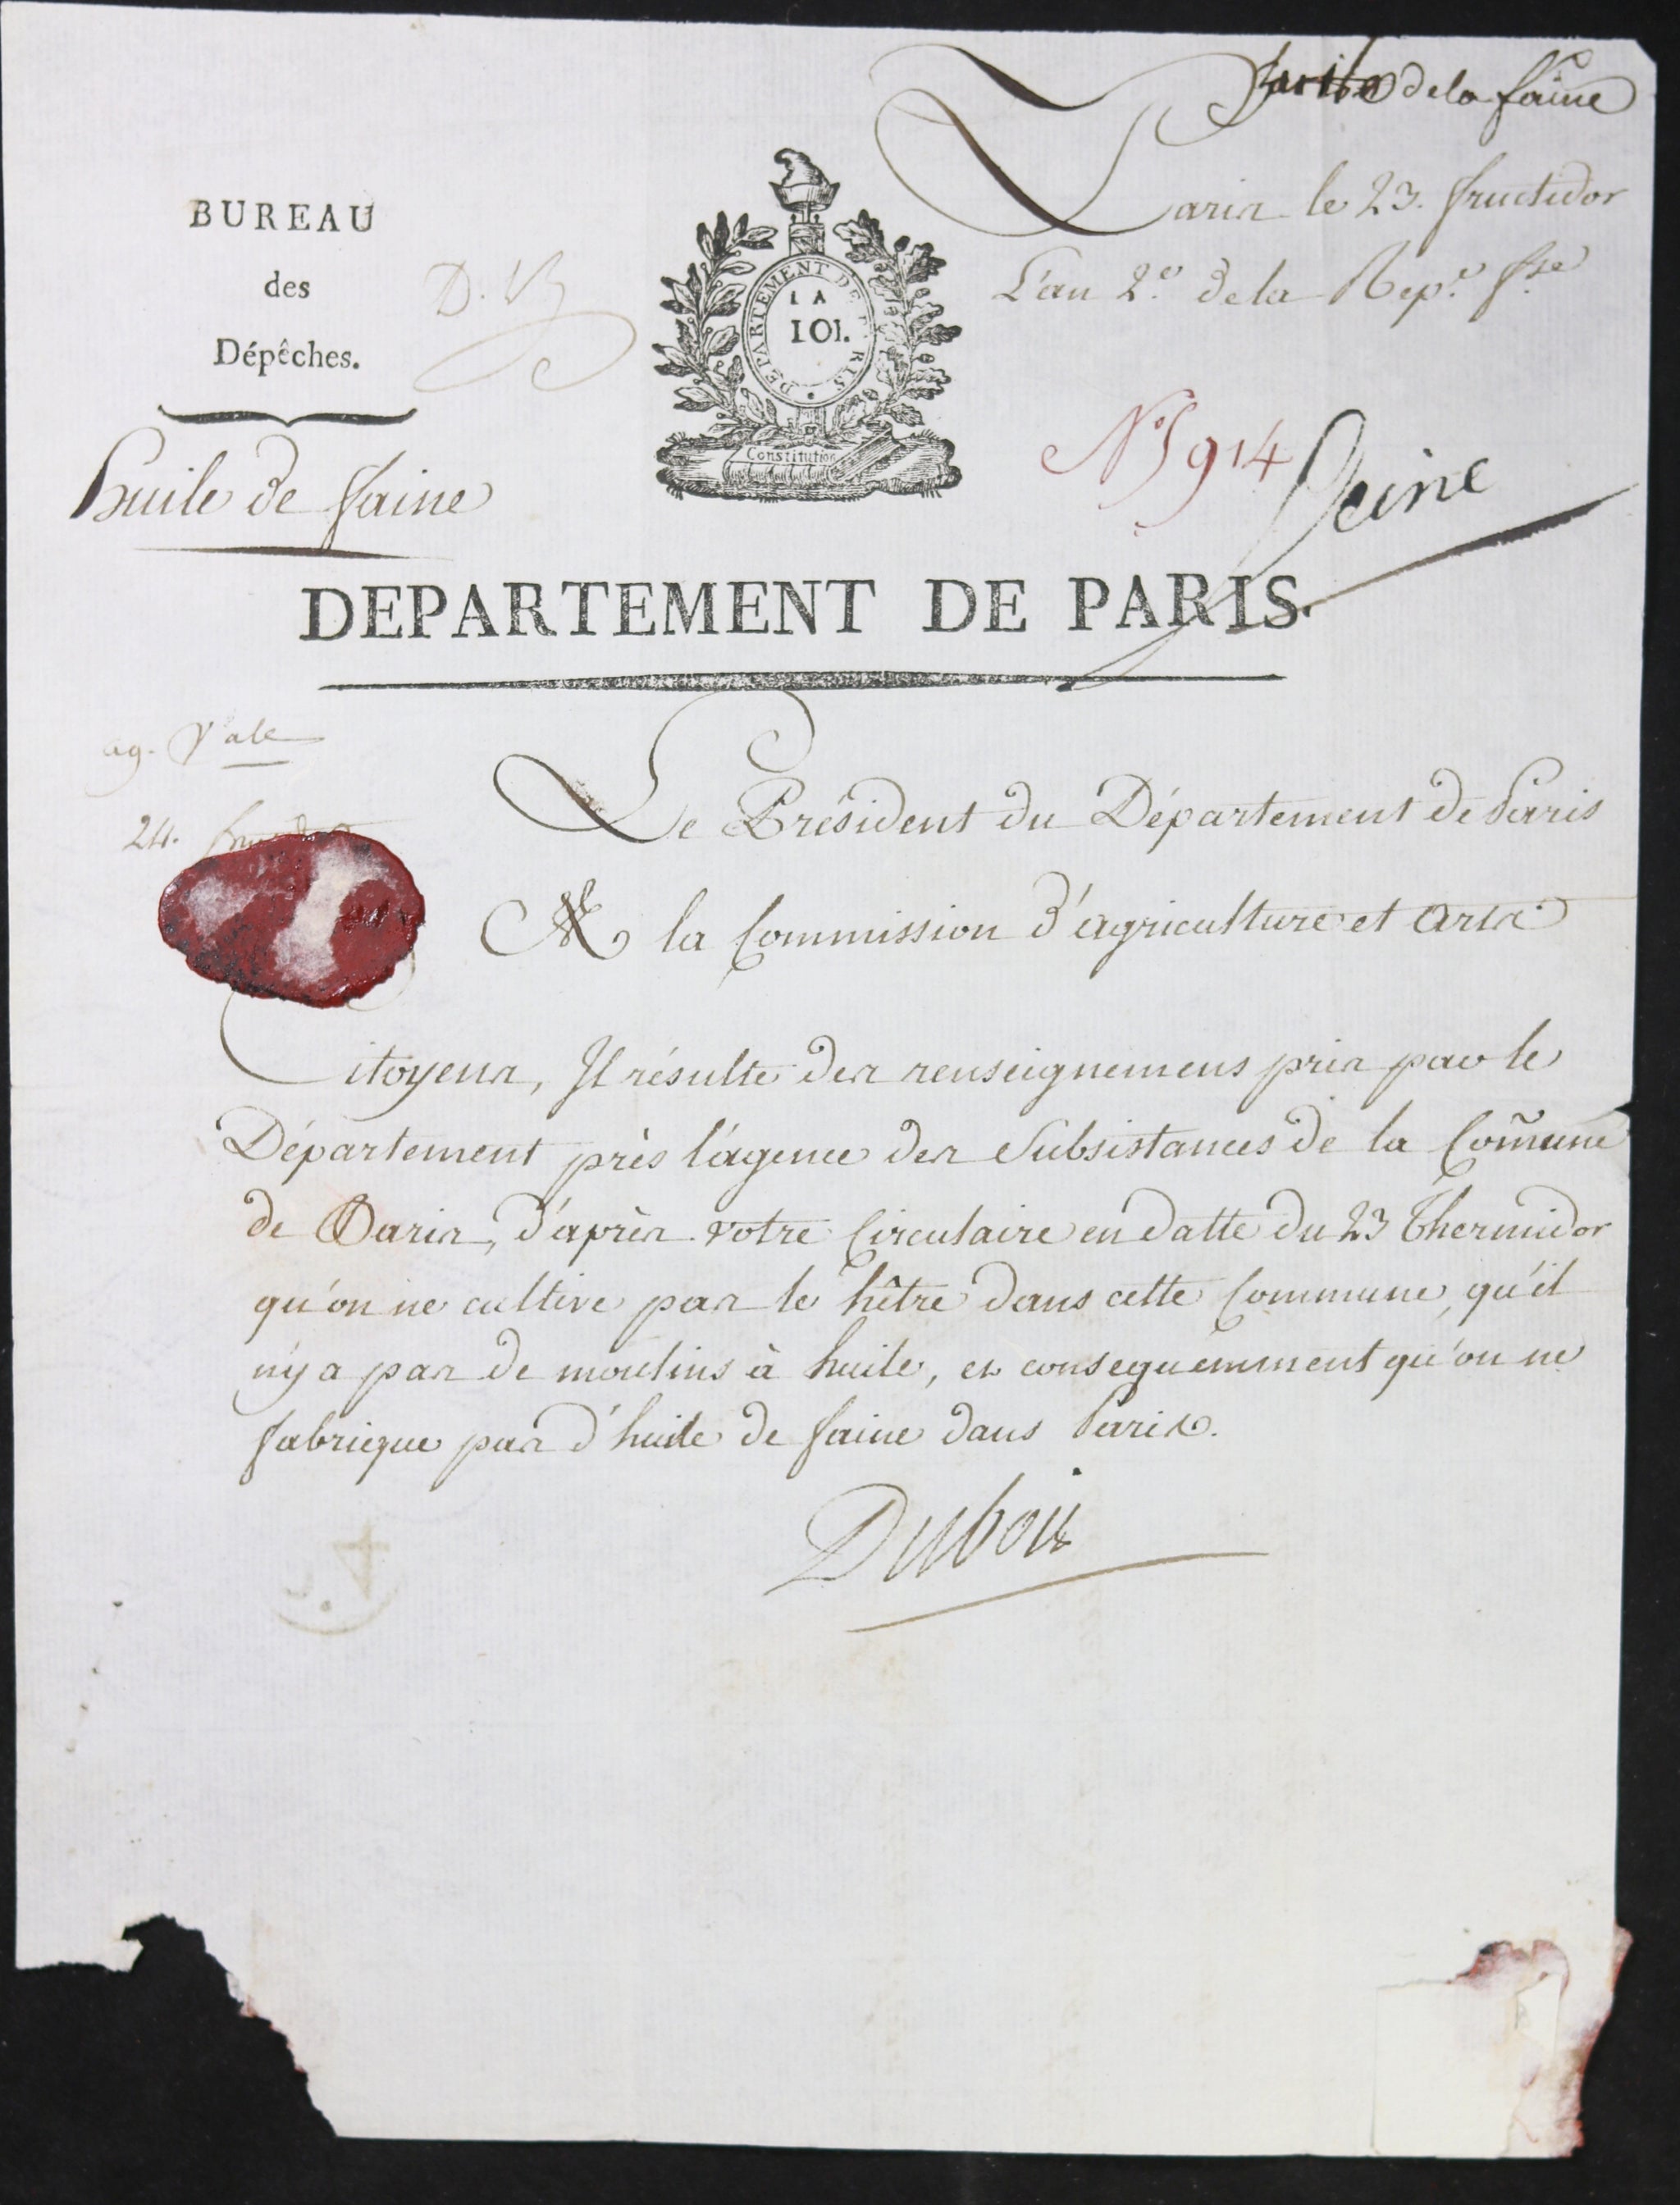 de la faine
Paris le 23. fructidor
L'an 2.e de la Rep.e f.se
BUREAU
des
Dépêches.
D. B
DEPARTEMENT DE PARIS
LA
LOI.
Constitution
N° 914
Seine
huile de faine
DEPARTEMENT DE PARIS.
ag. Vale
24.
Le Président du Département de Paris
A la Commission d'agriculture et arts
Citoyens, Il résulte des renseignemens pris par le
Département près l'agence des Subsistances de la Com̃une
de Paris, d'après votre Circulaire en datte du 23 Thermidor
qu'on ne cultive pas le hêtre dans cette Commune, qu'il
n'y a pas de moulins à huile, et consequemment qu'on ne
fabrique pas d'huile de faine dans Paris.
Dubois